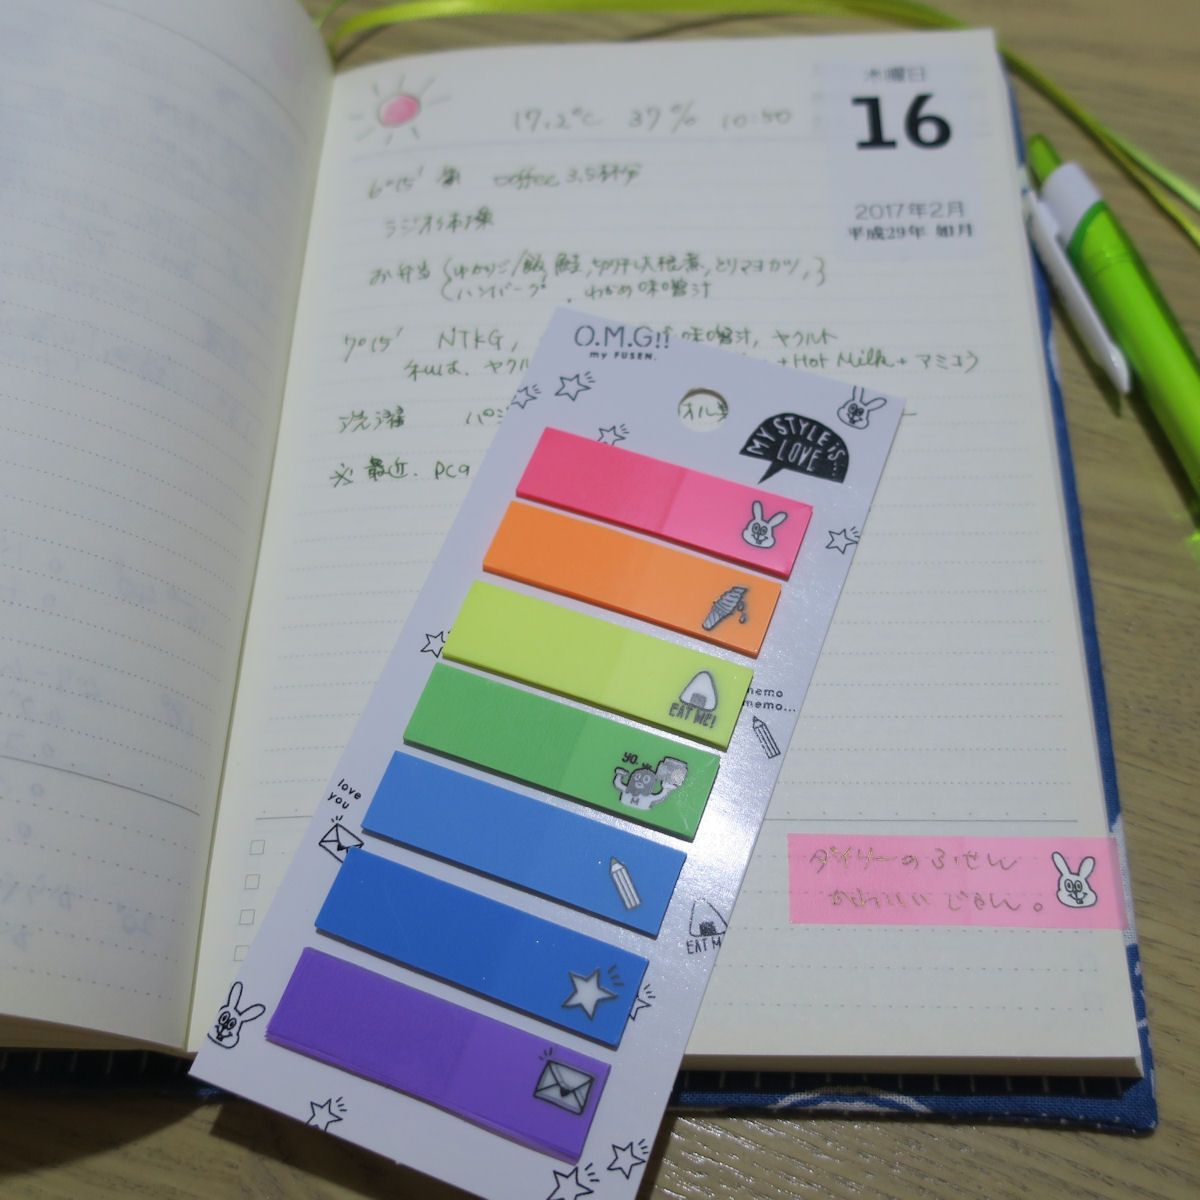 木曜日
16
2017年2月
平成29年 如月
17.2℃ 37% 10:50
6°15' coffee 3.5杯分
ラジオ体操
お弁当 わかりご飯, 鮭, 切干し大根煮, とりマヨカツ,
ハンバーグ , わかめ味噌汁
7°15' NTKG, 味噌汁, ヤクルト
私は、ヤクル + Hot Milk +
洗濯 パン
※ 最近、PCの
O.M.G!!
my FUSEN.
オル
MY STYLE is...
LOVE
EAT ME!
memo
memo...
yo,
M
love
you
EAT M
ダイソーのふせん
かわいいじゃん。